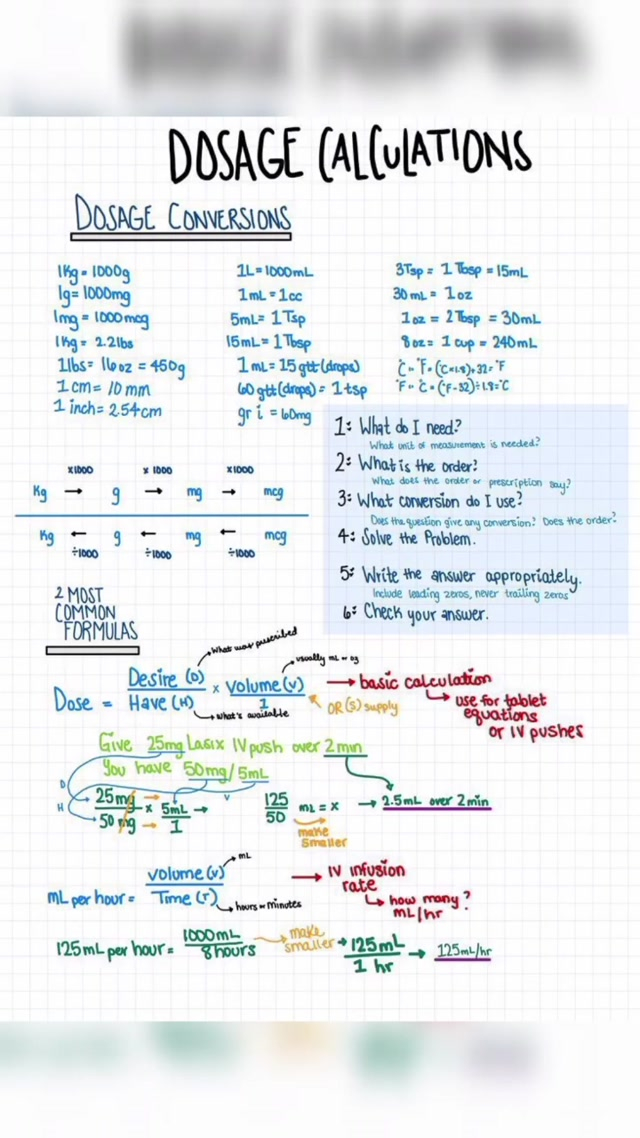 DOSAGE CALCULATIONS
DOSAGE CONVERSIONS
1Kg = 1000g
1g = 1000mg
1mg = 1000mcg
1Kg = 2.2lbs
1lbs = 16oz = 450g
1cm = 10mm
1 inch = 2.54cm
1L = 1000mL
1mL = 1cc
5mL = 1Tsp
15mL = 1Tbsp
1mL = 15gtt (drops)
60gtt (drops) = 1tsp
gr i = 60mg
3Tsp = 1Tbsp = 15mL
30mL = 1oz
1oz = 2Tbsp = 30mL
8oz = 1 cup = 240mL
1: What do I need?
What unit of measurement is needed?
2: What is the order?
What does the order or prescription say?
3: What conversion do I use?
Does the question give any conversion? Does the order?
4: Solve the Problem.
5: Write the answer appropriately.
Include leading zeros, never trailing zeros
6: Check your answer.
x1000 x 1000 x1000
Kg → g → mg → mcg
Kg ← g ← mg ← mcg
÷1000 ÷1000 ÷1000
2 MOST
COMMON
FORMULAS
What was prescribed
usually mL or
Dose = Desire (D) / Have (H) x Volume (V) / 1
→ basic calculation
What's available
OR (S) supply
use for tablet
equations
or IV pushes
Give 25mg Lasix IV push over 2min
You have 50mg/5mL
D
H
V
25mg / 50mg → x 5mL / 1 →
125 / 50 mL = x → 2.5mL over 2min
make
smaller
mL per hour = Volume (V) / Time (T)
mL
hours or minutes
→ IV infusion
rate
how many?
mL/hr
125mL per hour = 1000mL / 8hours
make
smaller
→ 125mL / 1 hr → 125mL/hr